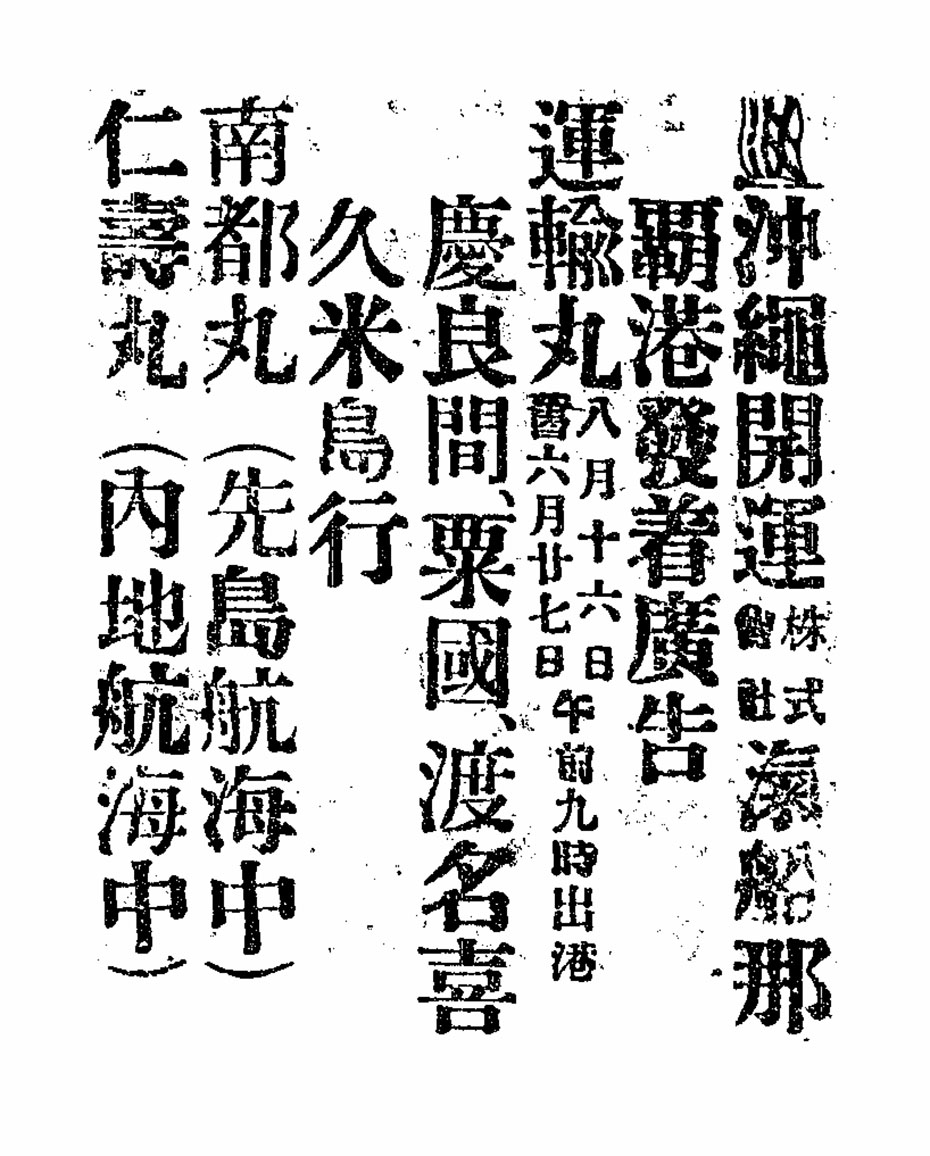 沖繩開運株式會社滊船那
覇港發着廣告
運輸丸八月十六日舊六月廿七日午前九時出港
慶良間、粟國、渡名喜
久米島行
南都丸（先島航海中）
仁壽丸（內地航海中）